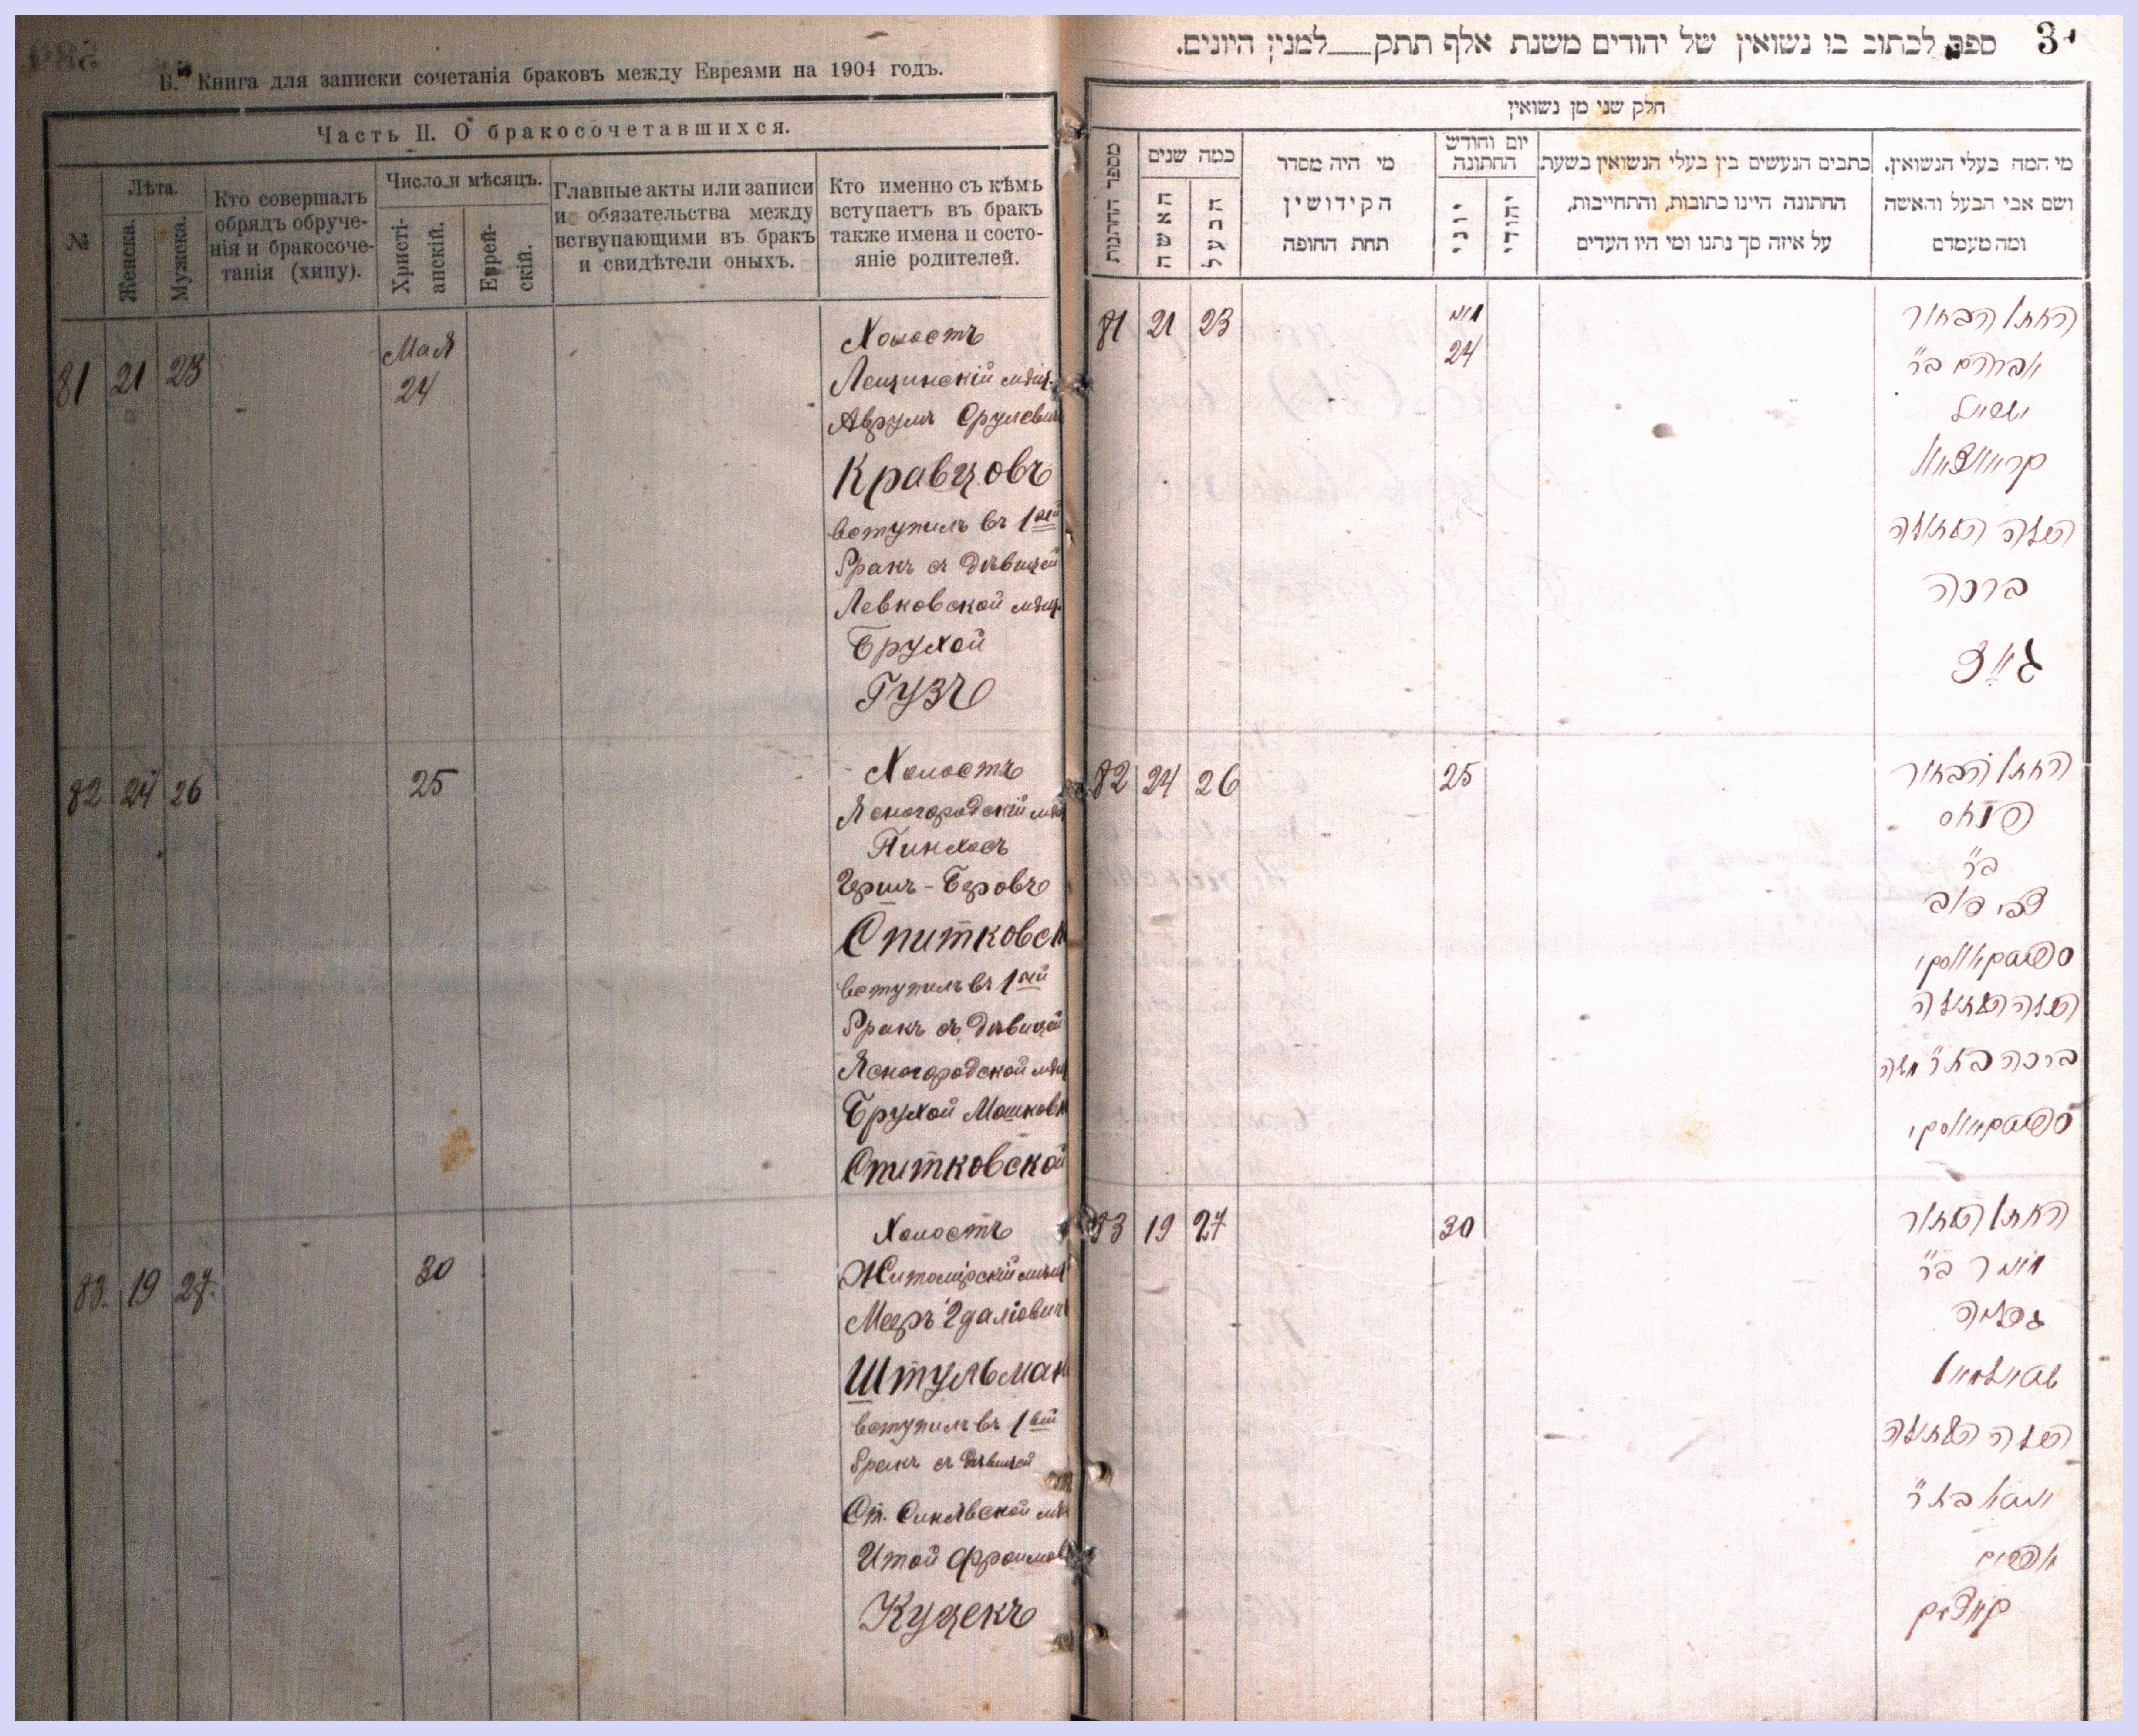 Б. Книга для записки сочетанія браковъ между Евреями на 1904 годъ.
Часть II. О бракосочетавшихся.
№
Лѣта.
Женска.
Мужска.
Кто совершалъ
обрядъ обруче-
нія и бракосоче-
танія (хипу).
Число и мѣсяцъ.
Христі-
анскій.
Еврей-
скій.
Главные акты или записи
и обязательства между
вствупающими въ бракъ
и свидѣтели оныхъ.
Кто именно съ кѣмъ
вступаетъ въ бракъ
также имена и состо-
яніе родителей.
81 21 23
Мая
24
Холостъ
Лещинскій мѣщ.
Аврумъ Срулевич
Кравцовъ
вступилъ въ 1ый
бракъ съ дѣвицей
Левковской мѣщ.
Брухой
Гузъ
82 24 26 25
Холостъ
Ясногородскій мѣщ
Пинхосъ
Гершъ-Беровъ
Спитковск
вступилъ въ 1ый
бракъ съ дѣвицей
Ясногородской мѣщ
Брухой Мошков
Спитковской
83. 19 27. 30
Холостъ
Житомірскій мѣщ
Мееръ Гдаліович
Штульман
вступилъ въ 1ый
бракъ съ дѣвицей
Ст. Синявской мѣщ
Итой Фроимов
Куцекъ
3
ספר לכתוב בו נשואין של יהודים משנת אלף תתק למנין היונים.
חלק שני מן נשואין
מספר החתנות
כמה שנים
האשה
הבעל
מי היה מסדר
הקידושין
תחת החופה
יום וחודש
החתונה
יוני
יהודי
כתבים הנעשים בין בעלי הנשואין בשעת
החתונה היינו כתובות, והתחייבות,
על איזה סך נתנו ומי היו העדים
מי המה בעלי הנשואין.
ושם אבי הבעל והאשה
ומה מעמדם
81 21 23
מאי
24
החתן הבחור
אברהם ב"ר
ישראל
קראווצאוו
הכלה הבתולה
ברכה
גוז
82 24 26 25
החתן הבחור
פנחס
ב"ר
צבי דוב
ספיטקאווסקי
הכלה הבתולה
ברכה בת ר' משה
ספיטקאווסקי
83 19 27 30
החתן הבחור
מאיר ב"ר
גדליה
שטולמאן
הכלה הבתולה
איטא בת ר'
אפרים
קוצעק